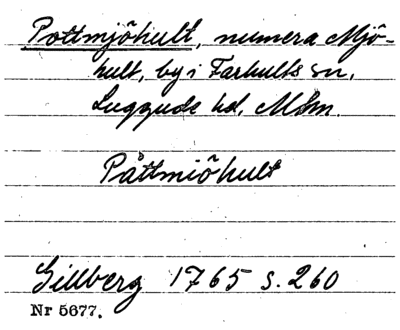 Pottmjöhult, numera Mjö-
hult, by i Farhults sn,
Luggude hd, Mlm.
Påttmiöhult
Gillberg 1765 s. 260
Nr 5677.